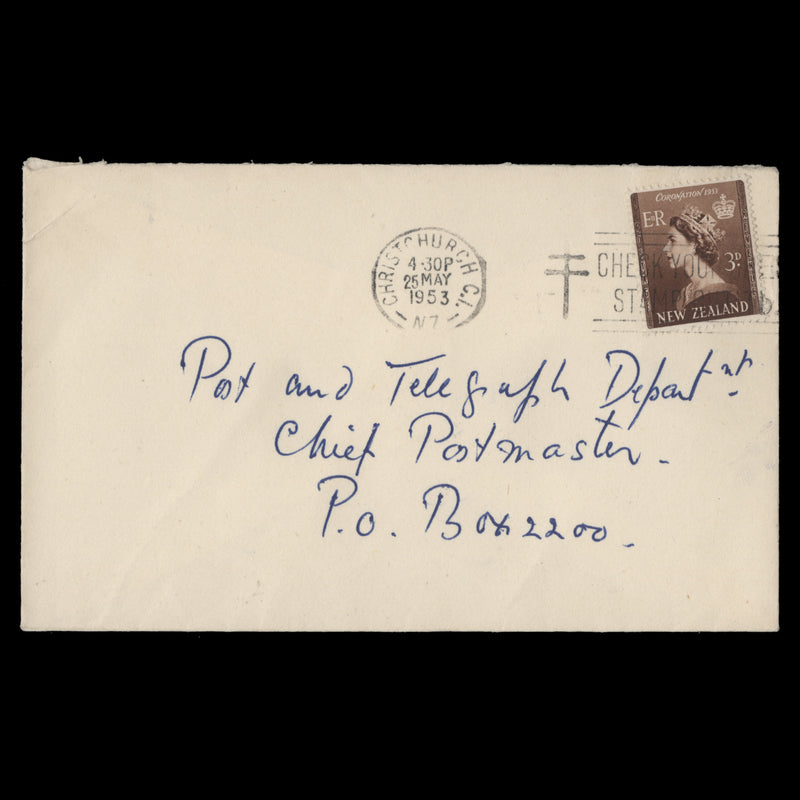 CORONATION 1953
E R
3D
NEW ZEALAND
CHRISTCHURCH C.1.
4-30P
25 MAY
1953
N.Z.
CHECK YOUR
Post and Telegraph Depart nt.
Chief Postmaster.
P.O. Box 2200.